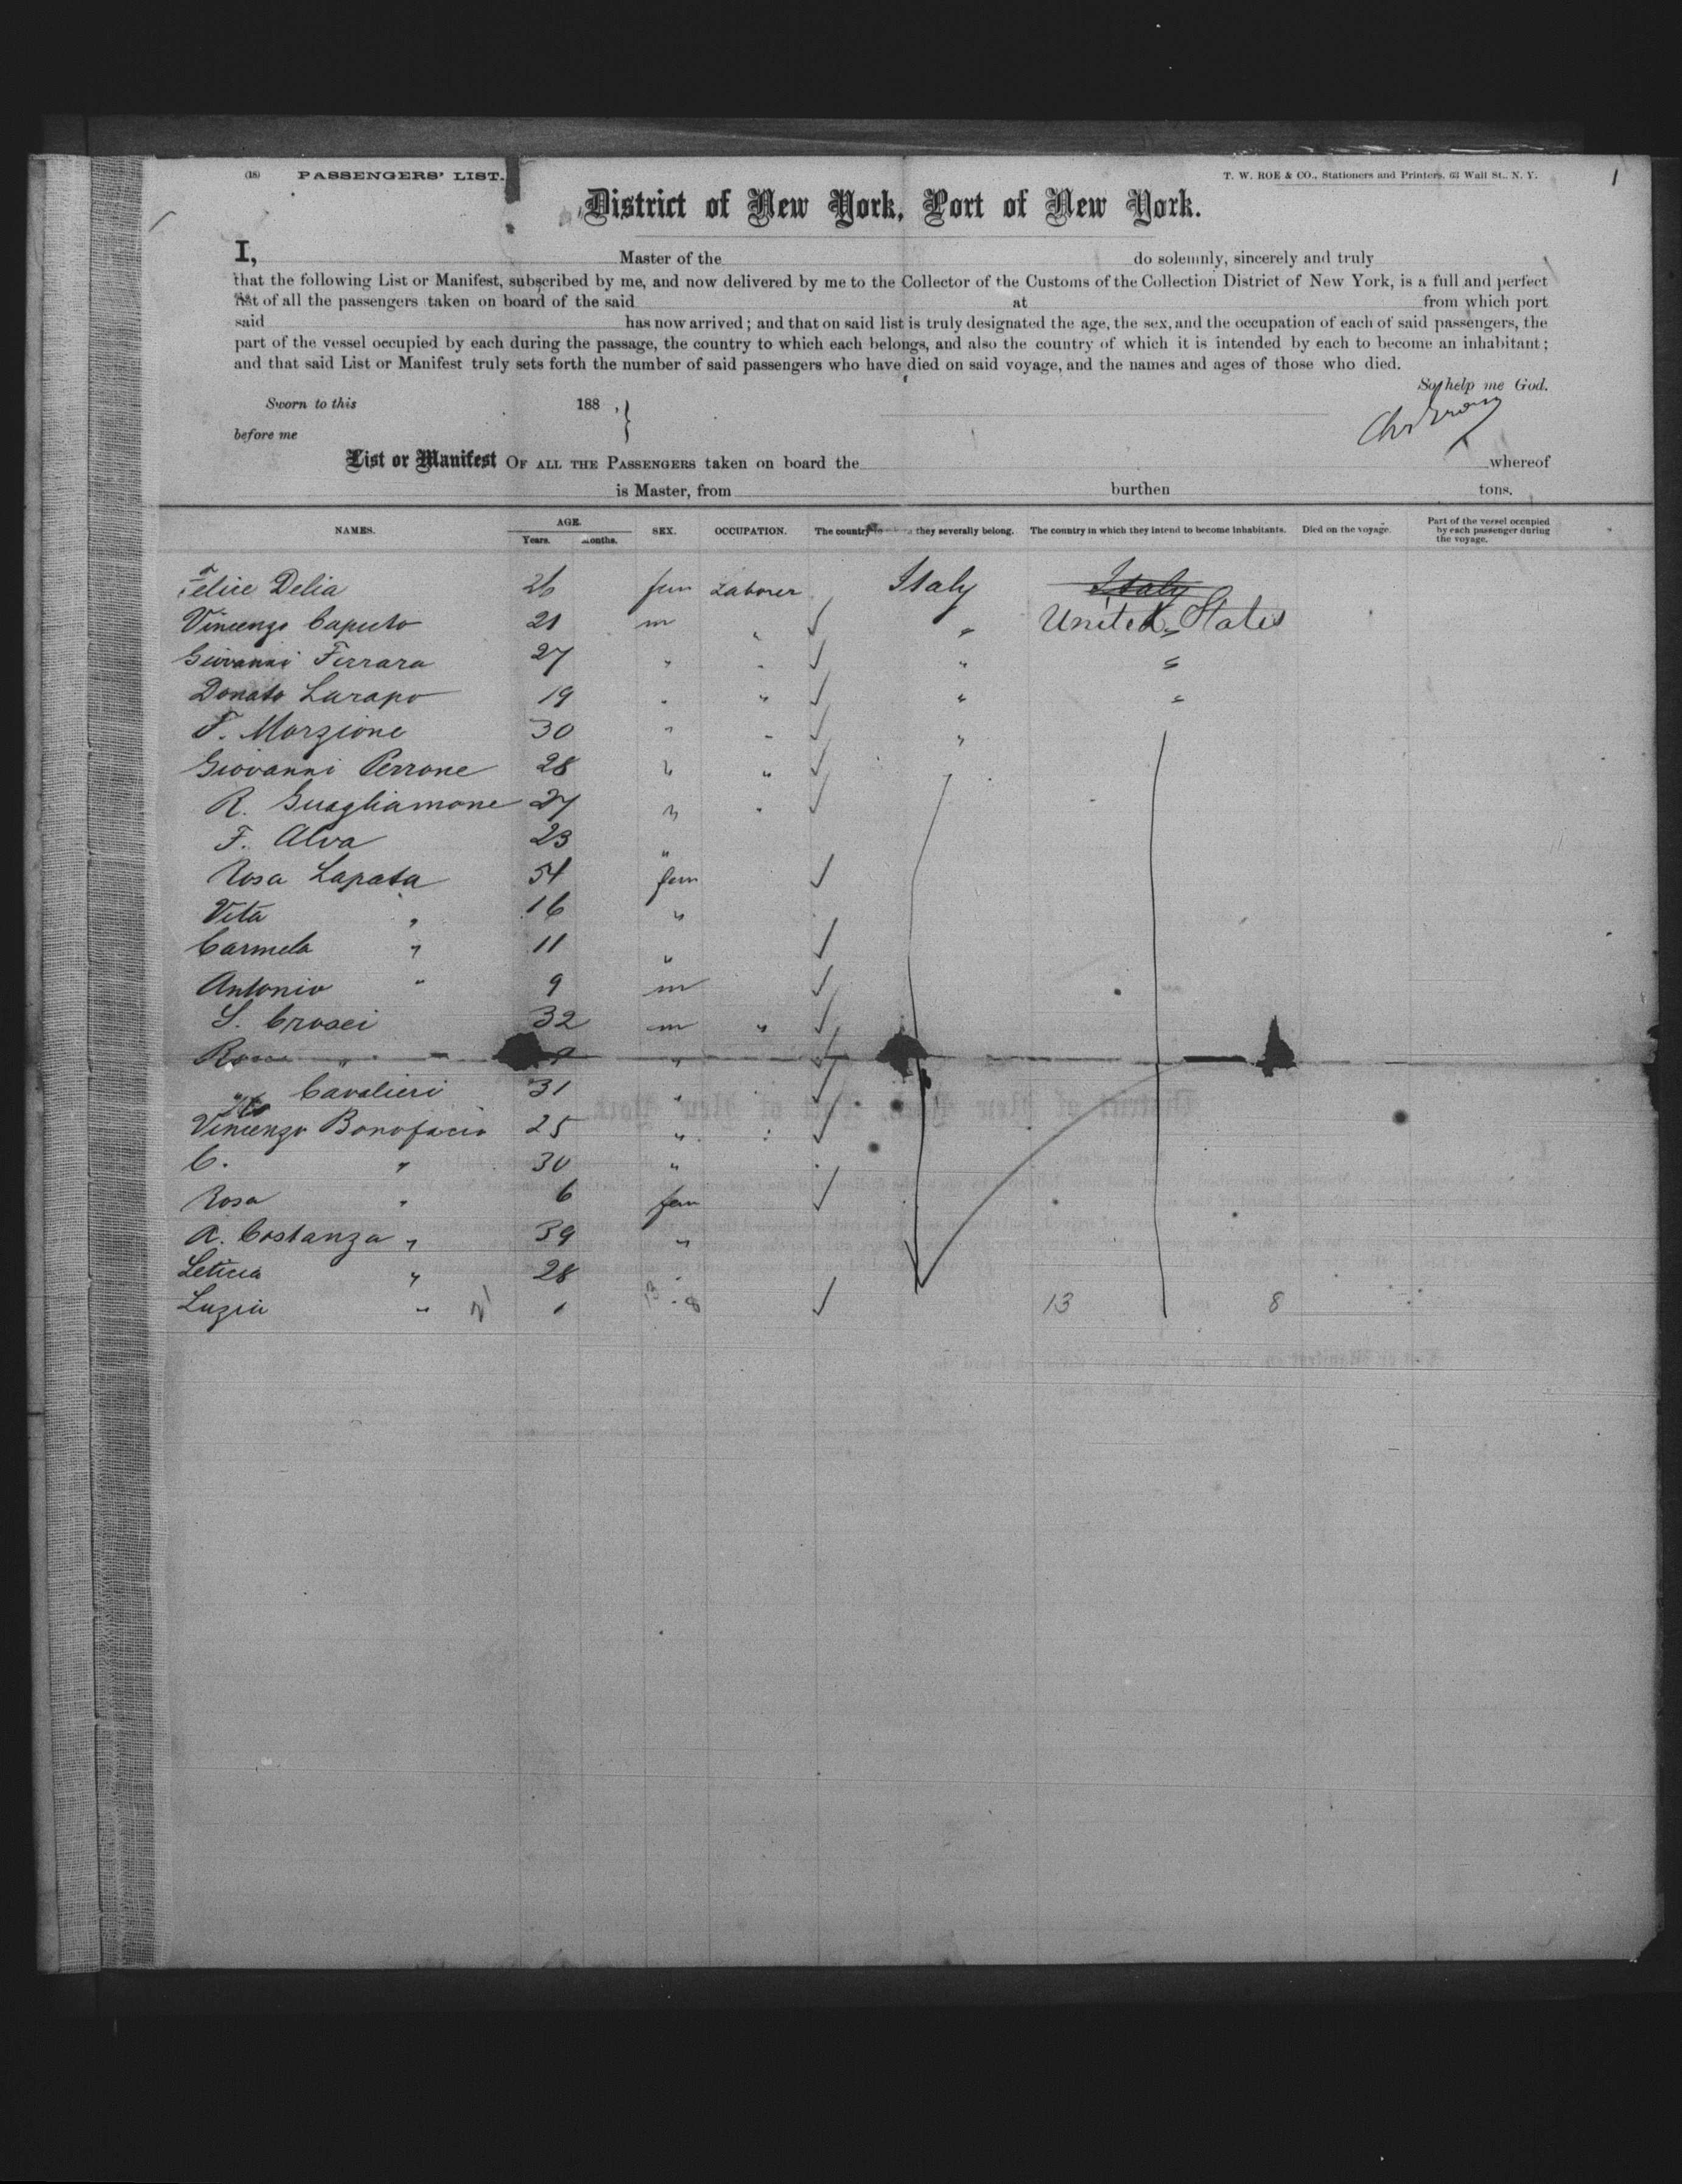 (18) PASSENGERS' LIST. T. W. ROE & CO., Stationers and Printers, 63 Wall St., N. Y. 1
District of New York, Port of New York.
I, Master of the do solemnly, sincerely and truly
that the following List or Manifest, subscribed by me, and now delivered by me to the Collector of the Customs of the Collection District of New York, is a full and perfect
list of all the passengers taken on board of the said at from which port
said has now arrived; and that on said list is truly designated the age, the sex, and the occupation of each of said passengers, the
part of the vessel occupied by each during the passage, the country to which each belongs, and also the country of which it is intended by each to become an inhabitant;
and that said List or Manifest truly sets forth the number of said passengers who have died on said voyage, and the names and ages of those who died.
So help me God.
Sworn to this 188 ,
before me
List or Manifest OF ALL THE PASSENGERS taken on board the whereof
is Master, from burthen tons.
NAMES. AGE. Years. Months. SEX. OCCUPATION. The country they severally belong. The country in which they intend to become inhabitants. Died on the voyage. Part of the vessel occupied by each passenger during the voyage.
Felice Delia 26 fem Laborer Italy Italy
Vincenzo Caputo 21 m " ✓ " United States
Giovanni Ferrara 27 " " ✓ " "
Donato Lurapo 19 " " ✓ " "
F. Marzione 30 " " ✓ "
Giovanni Perrone 28 " " ✓
R. Guagliamone 27 " " ✓
F. Alva 23 "
Rosa Lapata 54 fem ✓
Vita " 16 "
Carmela " 11 " ✓
Antonio " 9 m ✓
S. Crosci 32 m " ✓
" ✓
Cavalieri 31 " ✓
Vincenzo Bonofacio 25 " " ✓
C. " 30 "
Rosa " 6 fem ✓
A. Costanza " 39 "
Leticia " 28 "
Luzia " 1 13 8 ✓ 13 8